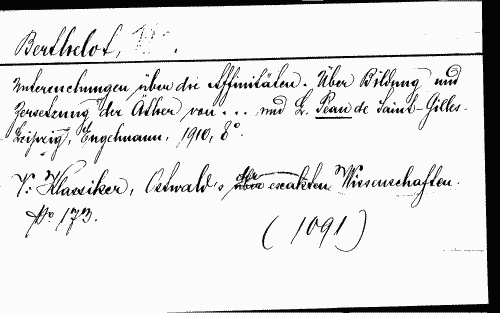 Berthelot,
Untersuchungen über die Affinitäten. Über Bildung und
Zersetzung der Aether von ... und L. Pean de Saint-Gilles.
Leipzig, Engelmann, 1910, 8°.
V: Klassiker, Ostwald's der exakten Wissenschaften.
No 173.
(1091)